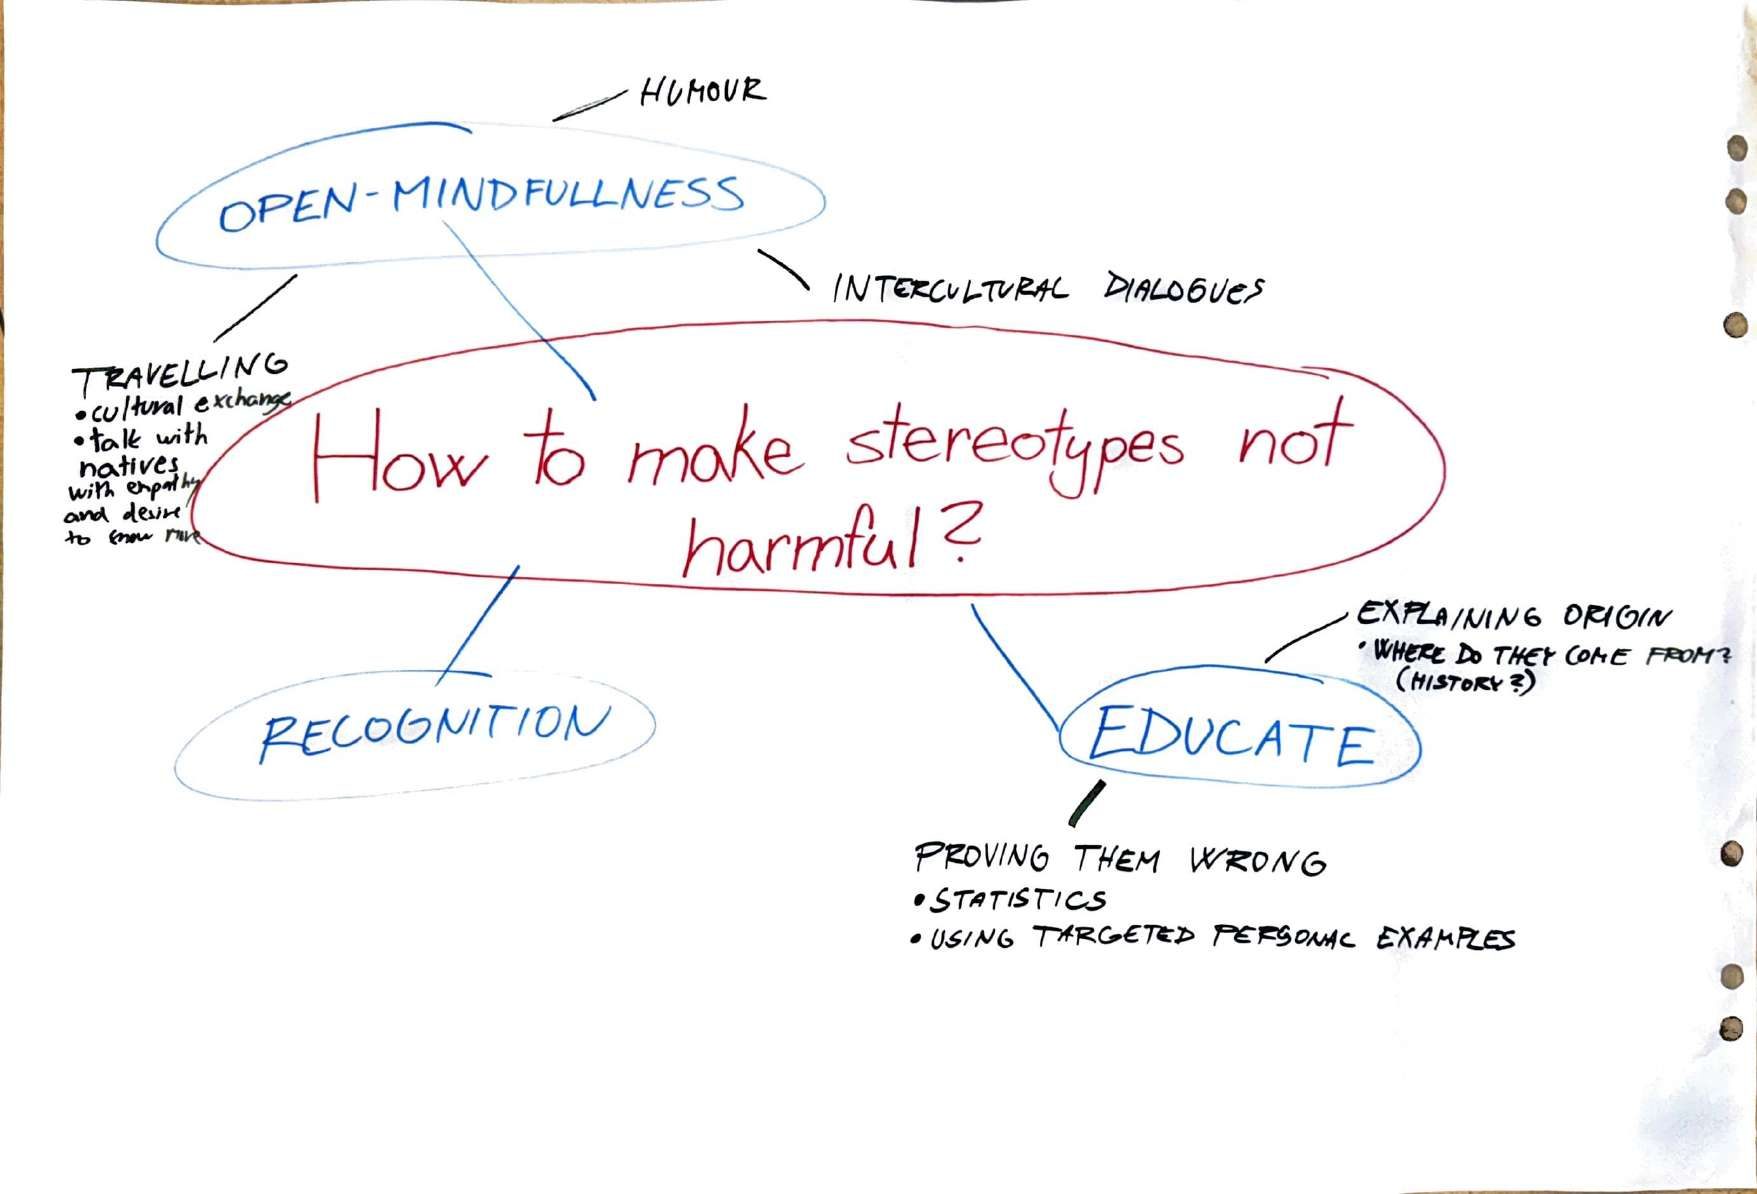 HUMOUR
OPEN-MINDFULLNESS
INTERCULTURAL DIALOGUES
TRAVELLING
• cultural exchange
• talk with
natives
with empathy
and desire
to know more
How to make stereotypes not
harmful?
RECOGNITION
EDUCATE
EXPLAINING ORIGIN
• WHERE DO THEY COME FROM?
(HISTORY?)
PROVING THEM WRONG
• STATISTICS
• USING TARGETED PERSONAL EXAMPLES